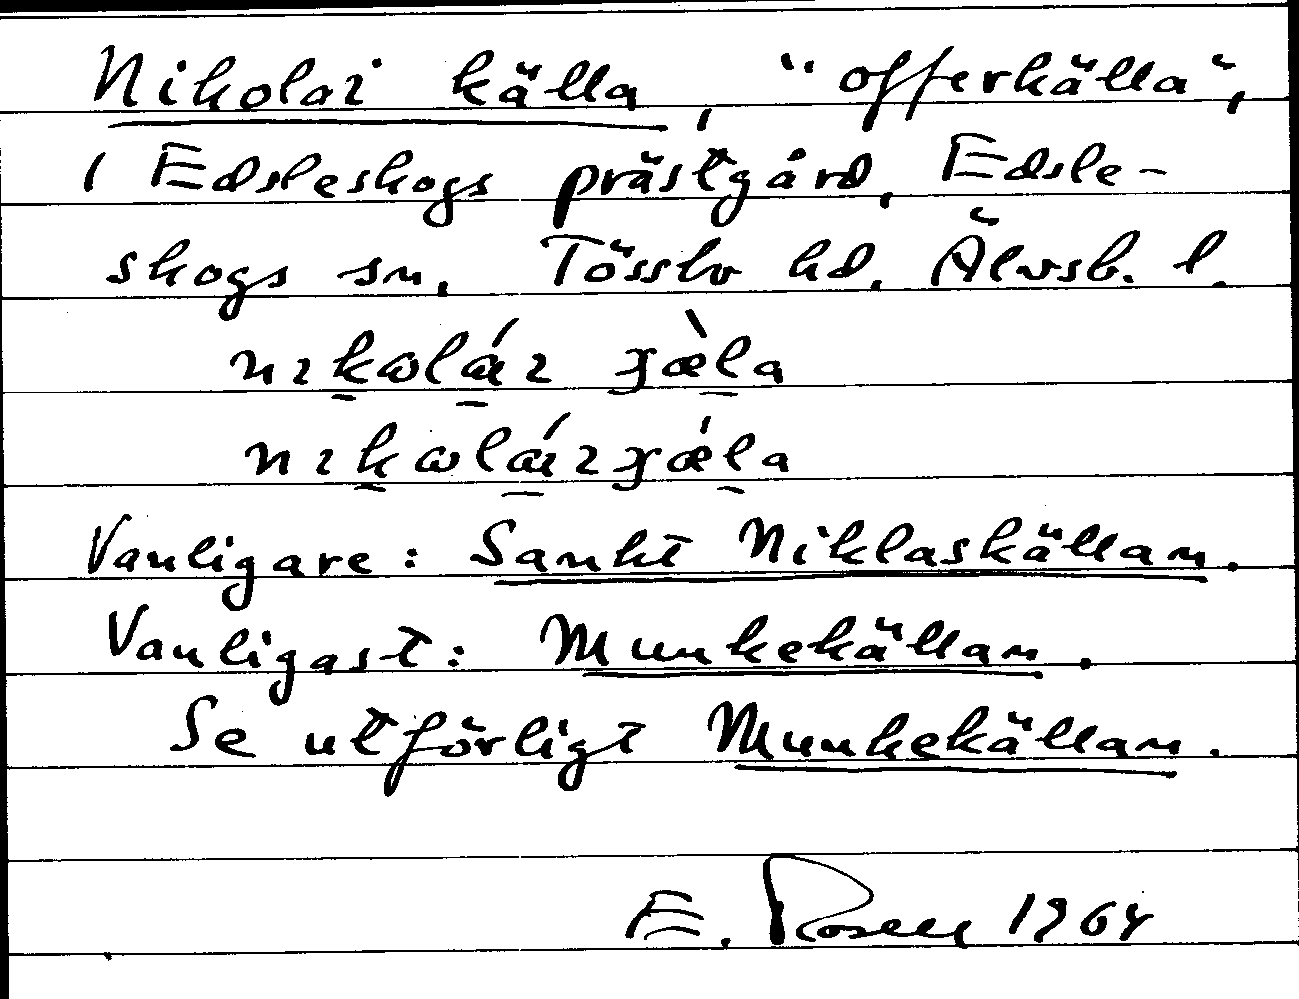 Nikolai källa, "offerkälla",
i Edsleskogs prästgård, Edsle-
skogs sn, Tössbo hd, Älvsb. l.
Vanligare: Sankt Niklaskällan.
Vanligast: Munkekällan.
Se utförligt Munkekällan.
E. Rosell 1964